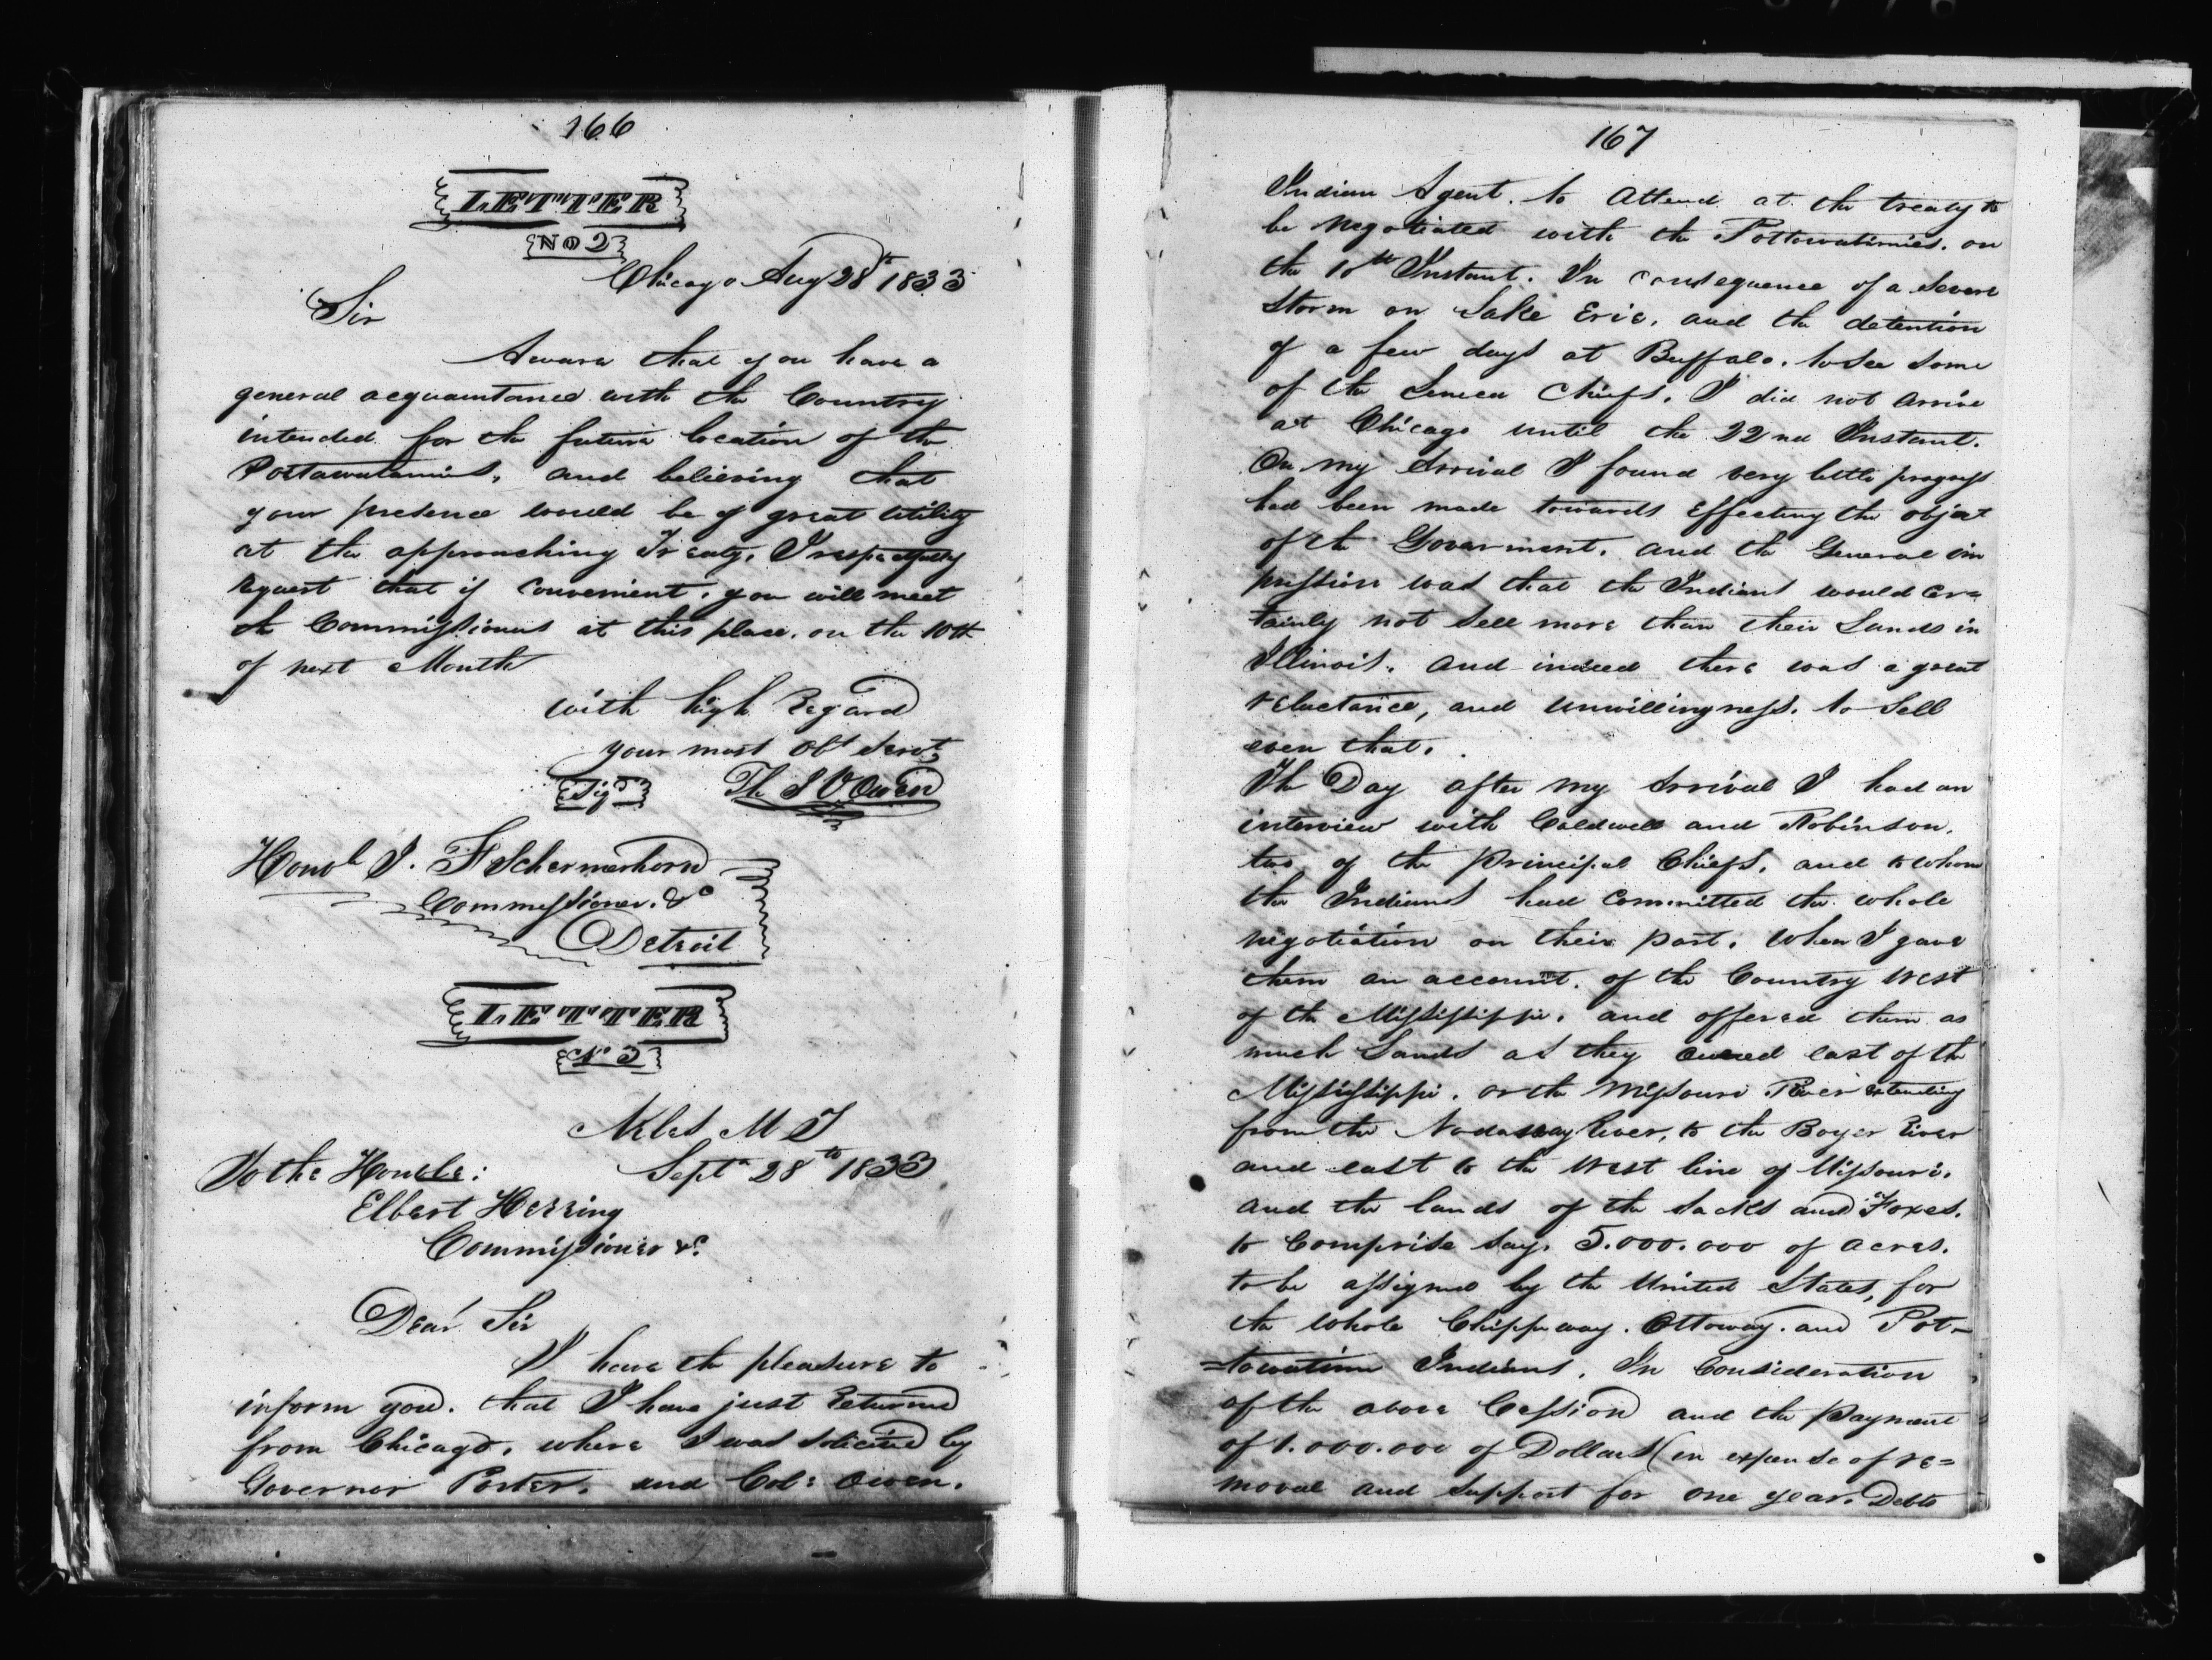 166
LETTER
NO 2
Chicago Aug 28th 1833
Sir
Aware that you have a
general acquaintance with the Country
intended for the future location of the
Pottawatamies, and believing that
your presence would be of great utility
at the approaching Treaty, I respectfully
request that if convenient, you will meet
the Commissioners at this place, on the 10th
of next Month
with high Regard
your most Obt Servt
Sigd Th J V Owen
Honbl J. F Schermerhorn
Commissioner. &c
Detroit
LETTER
No 3
Niles M T
To the Honble: Sept 28th 1833
Elbert Herring
Commissioner &c.
Dear Sir
I have the pleasure to
inform you. that I have just Returned
from Chicago, where I was solicited by
Governor Porter, and Col: Owen.
167
Indian Agent. to Attend at the treaty to
be Negotiated with the Pottowatimies. on
the 10th Instant. In consequence of a Severe
Storm on Lake Erie, and the detention
of a few days at Buffalo. to see some
of the Seneca Chiefs. I did not Arrive
at Chicago until the 22nd Instant.
On my Arrival I found very little progress
had been made towards Effecting the object
of the Goverment. and the General im
pression was that the Indians would Cer=
tainly not Sell more than their Lands in
Illinois. and indeed there was a great
reluctance, and unwillingness. to Sell
even that.
The Day after my Arrival I had an
interview with Caldwell and Robinson.
two of the Principal Chiefs, and to whom
the Indians had Committed the whole
negotiation on their part. When I gave
them an account. of the Country West
of the Mississippi. and offered them as
much Lands as they owned east of the
Mississippi. on the Missouri River extending
from the Nodaway River, to the Boyer River
and east to the West line of Missouri.
and the lands of the Sacks and Foxes.
to Comprise say. 5.000.000 of acres.
to be assigned by the United States, for
the whole Chippeway. Ottoway. and Pot-
=towatimie Indians. In Consideration
of the above Cession and the Payment
of 1.000.000 of Dollars (in expense of re=
moval and Support for one year. Debts